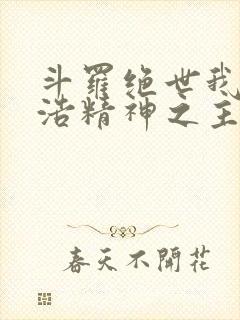 斗羅绝世我
浩精神之主
春天不開花